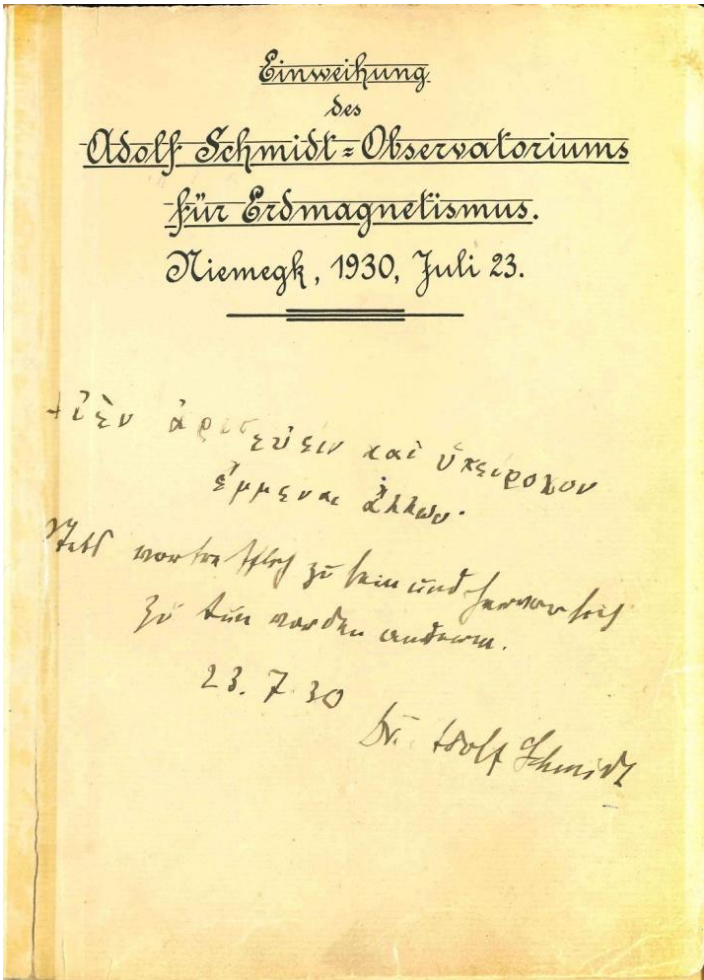 Einweihung
des
Adolf Schmidt=Observatoriums
für Erdmagnetismus.
Niemegk, 1930, Juli 23.
Αἰὲν ἀριστεύειν καὶ ὑπείροχον
ἔμμεναι ἄλλων.
Stets vortrefflich zu sein und hervor sich
zu tun vor den anderen.
23.7.30
Dr. Adolf Schmidt